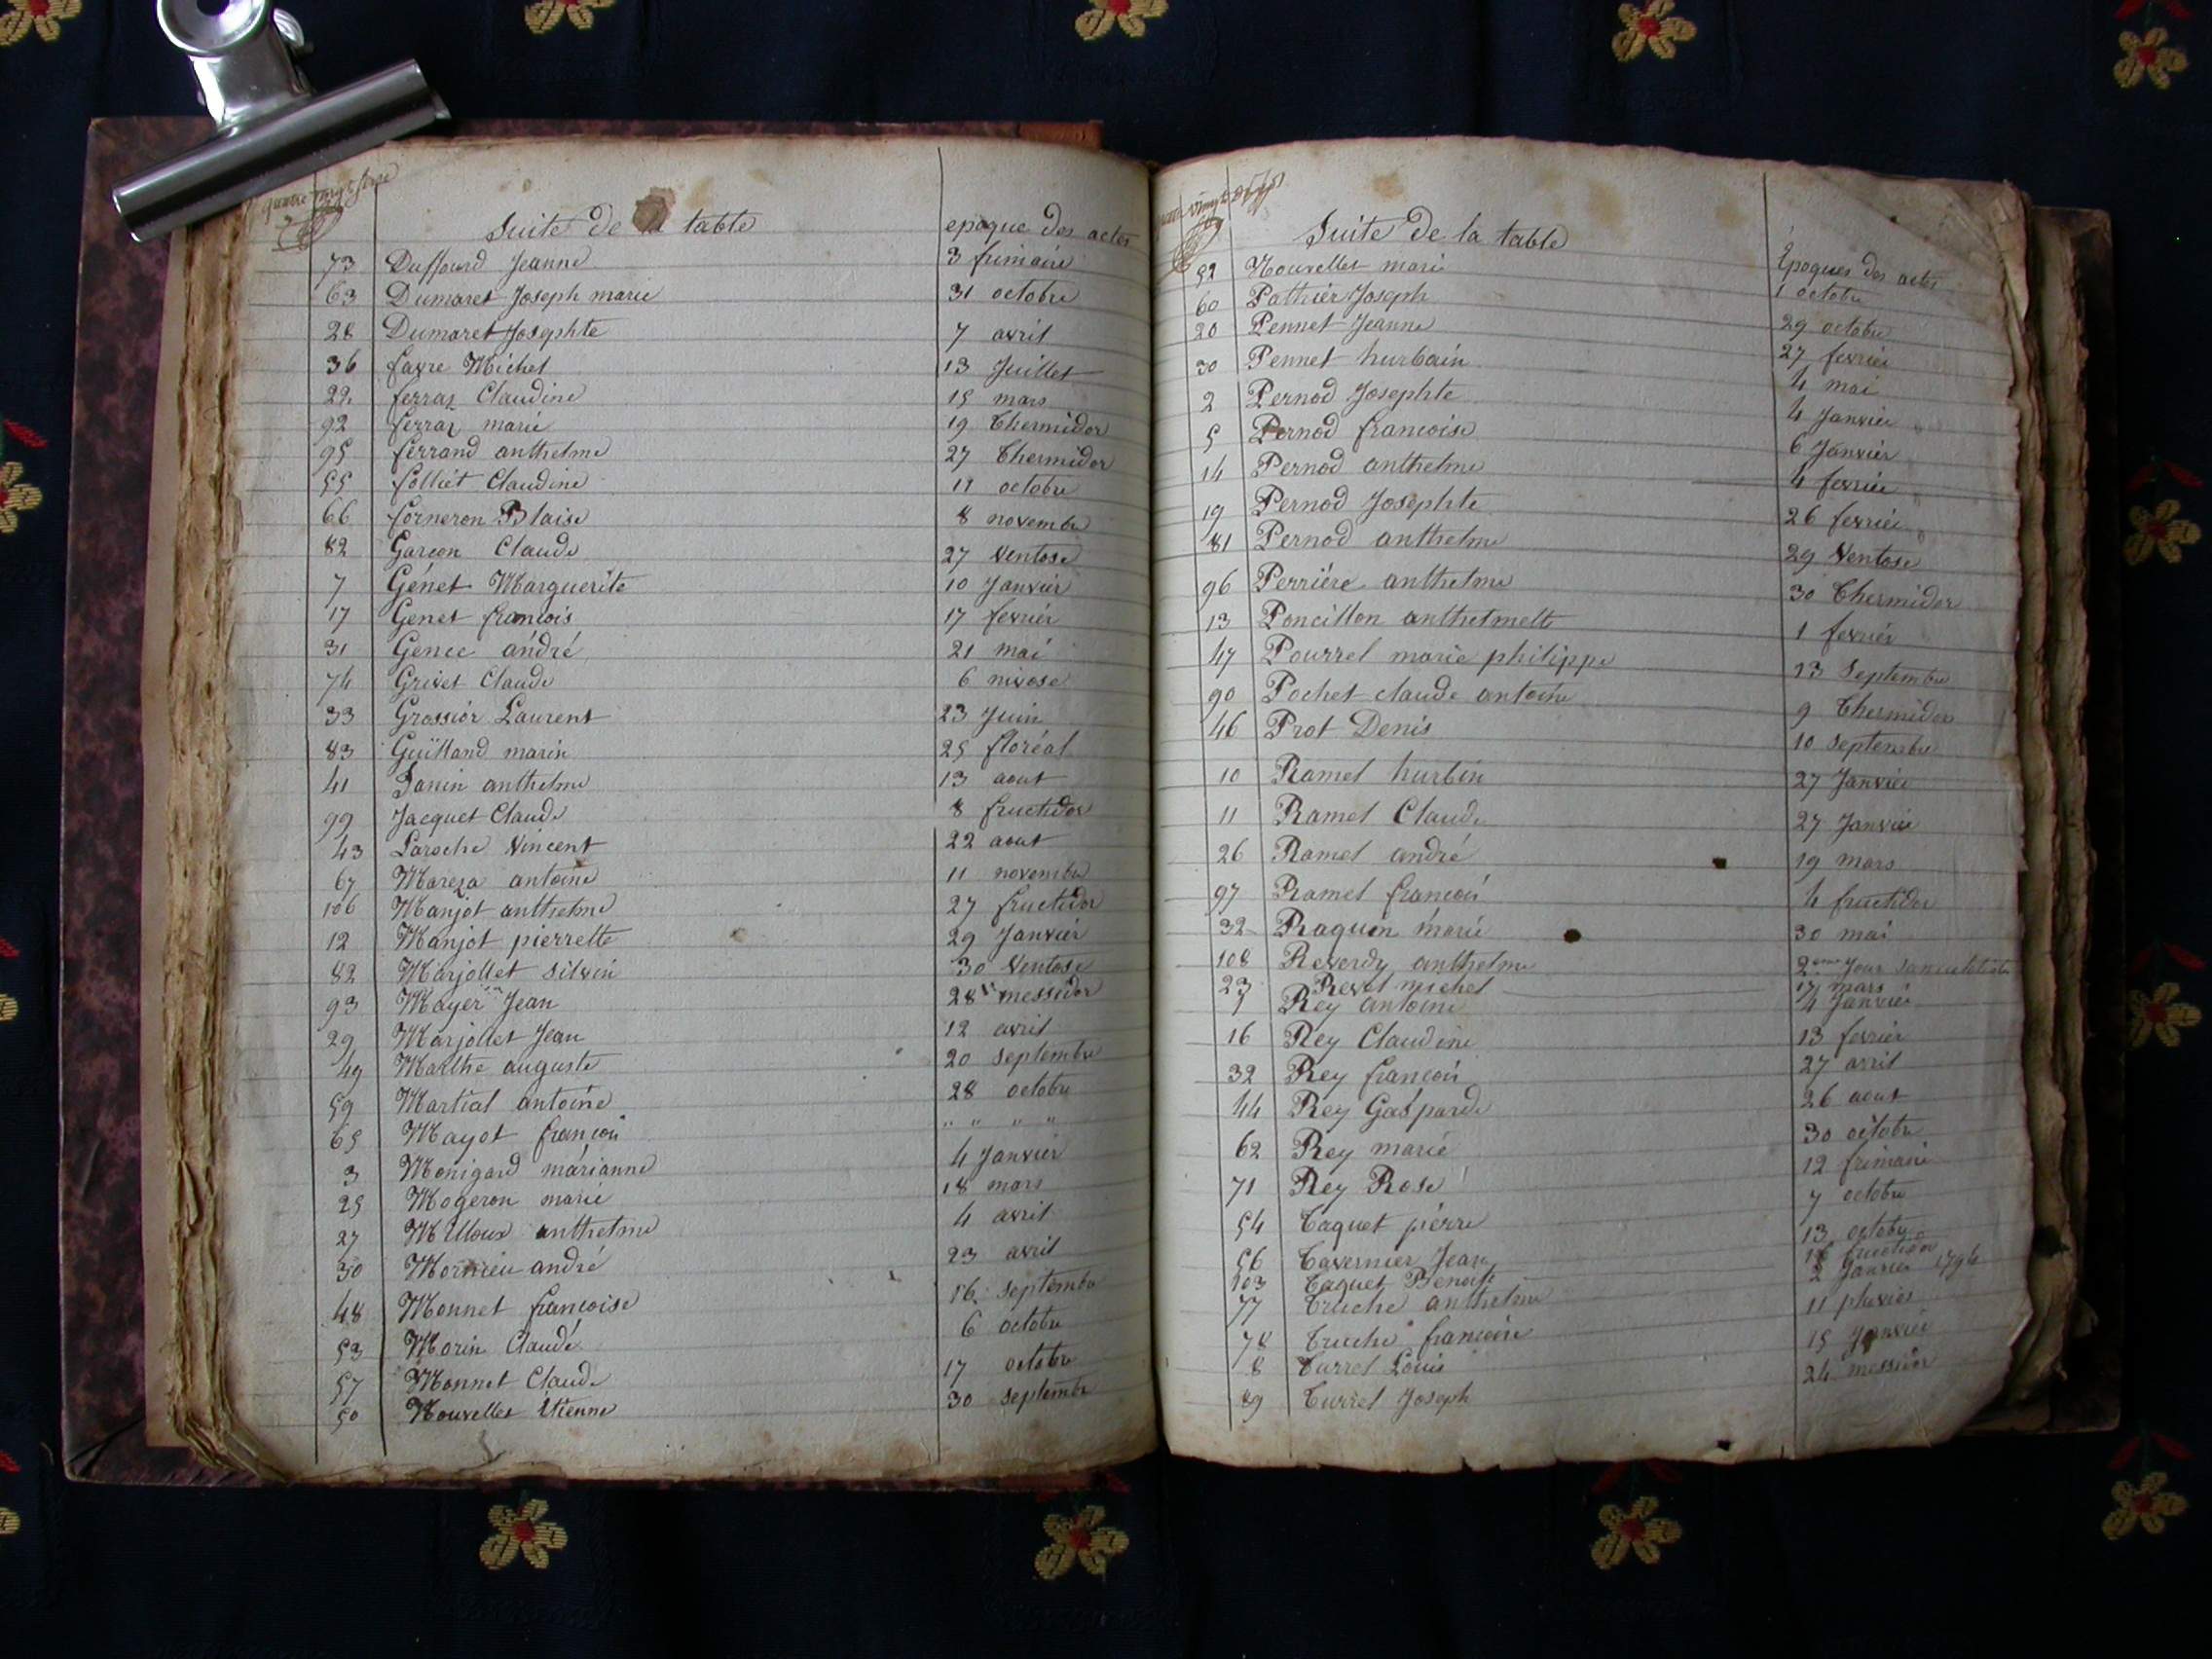 quatre vingt
Suite de la table epoque des actes
73 Duffourd Jeanne 3 frimaire
63 Dumaret Joseph marie 31 octobre
28 Dumaret Josephte 7 avril
36 favre Michel 13 Juillet
22 ferraz Claudine 15 mars
92 ferraz marie 19 thermidor
95 ferrand anthelme 27 thermidor
55 folliet Claudine 11 octobre
66 forneron Blaise 8 novembre
82 Garcon Claude 27 Ventose
7 Génet Marguerite 10 Janvier
17 Genet francois 17 fevrier
31 Genee andré 21 mai
74 Grivet Claude 6 nivose
33 Grossior Laurent 23 Juin
83 Guilland marin 25 floréal
41 Janin anthelme 13 aout
99 Jacquet Claude 8 fructidor
43 Laroche Vincent 22 aout
67 Mareza antoine 11 novembre
106 Manjot anthelme 27 fructidor
12 Manjot pierrette 29 Janvier
82 Marjollet silvin 30 Ventose
93 Mayer Jean 28 messidor
29 Marjollet Jean 12 avril
49 Marthe auguste 20 septembre
59 Martial antoine 28 octobre
65 Mayot francois " " " "
3 Monigard márianne 4 Janvier
25 Mogeron marie 18 mars
27 Milloux anthelme 4 avril
30 Mornieu andré 23 avril
48 Monnet francoise 16 septembre
53 Morin Claude 6 octobre
57 Monnet Claude 17 octobre
50 Nouvellet Etienne 30 septembre
vingt
Suite de la table Époques des actes
52 Nouvellet marie 1 octobre
60 Pathier Joseph 29 octobre
20 Pennet Jeanne 27 fevrier
30 Pennet hurbain 4 mai
2 Pernod Josephte 4 Janvier
5 Pernod francoise 6 Janvier
14 Pernod anthelme 4 fevrier
19 Pernod Josephte 26 fevrier
81 Pernod anthelme 29 Ventose
96 Perriére anthelme 30 thermidor
13 Poncillon anthelmette 1 fevrier
47 Pourret marie philippe 13 Septembre
90 Pochet claude antoine 9 thermidor
46 Prot Denis 10 septembre
10 Ramel hurbin 27 Janvier
11 Ramel Claude 27 Janvier
26 Ramel andré 19 mars
97 Ramel francois 4 fructidor
32 Raquin marie 30 mai
108 Reverdy anthelme 2eme Jour
23 Revol michel 17 mars
Rey antoine 4 Janvier
16 Rey Claudine 13 fevrier
32 Rey francois 27 avril
44 Rey Gaspard 26 aout
62 Rey marie 30 octobre
71 Rey Rose 12 frimaire
54 taquet pierre 7 octobre
56 tavernier Jean 13 octobre
103 taquet Benoit fructidor
77 truche anthelme 2 Janvier 1794
78 truche francoise 11 pluviose
8 turrel Louis 15 Janvier
89 turrel Joseph 24 messidor